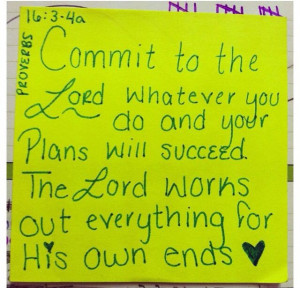 16:3-4a
PROVERBS
Commit to the
Lord whatever you
do and your
Plans will succeed.
The Lord works
out everything for
His own ends